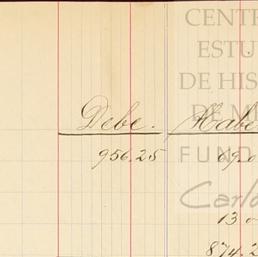 CENTR
ESTU
DE HIS
DE M
Debe. Habe
956.25 69.0
FUND
Carlo
13 0
874.2